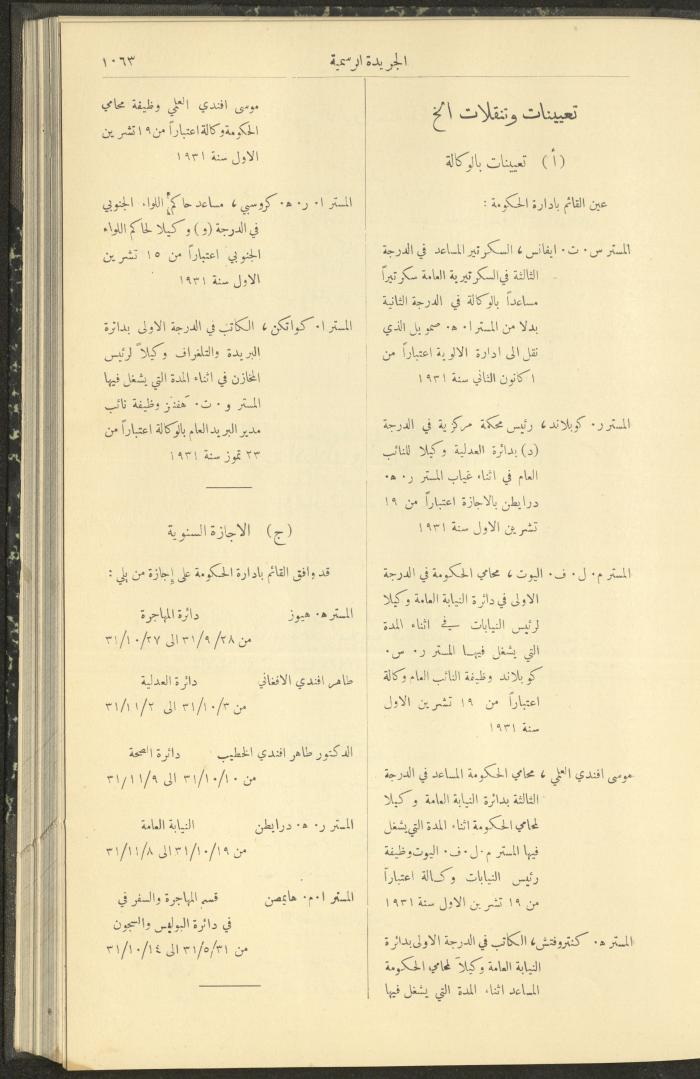 الجريدة الرسمية
١٠٦٣
تعيينات وتنقلات الخ
(أ) تعيينات بالوكالة
عين القائم بادارة الحكومة :
المستر س ٠ ت ٠ ايفانس ، السكرتير المساعد في الدرجة
الثالثة في السكرتيرية العامة سكرتيراً
مساعداً بالوكالة في الدرجة الثانية
بدلا من المستر ا ٠ ه ٠ صمويل الذي
نقل الى ادارة الالوية اعتباراً من
١ كانون الثاني سنة ١٩٣١
المستر ر ٠ كوبلاند ، رئيس محكمة مركزية في الدرجة
(د) بدائرة العدلية وكيلا للنائب
العام في اثناء غياب المستر ر ٠ ه ٠
درايطن بالاجازة اعتباراً من ١٩
تشرين الاول سنة ١٩٣١
المستر م ٠ ل ٠ ف ٠ اليوت ، محامي الحكومة في الدرجة
الاولى في دائرة النيابة العامة وكيلا
لرئيس النيابات في اثناء المدة
التي يشغل فيها المستر ر ٠ س ٠
كوبلاند وظيفة النائب العام وكالة
اعتباراً من ١٩ تشرين الاول
سنة ١٩٣١
موسى افندي العلمي ، محامي الحكومة المساعد في الدرجة
الثالثة بدائرة النيابة العامة وكيلا
لمحامي الحكومة اثناء المدة التي يشغل
فيها المستر م ٠ ل ٠ ف ٠ اليوت وظيفة
رئيس النيابات وكالة اعتباراً
من ١٩ تشرين الاول سنة ١٩٣١
المستر ه ٠ كنتروفتش ، الكاتب في الدرجة الاولى بدائرة
النيابة العامة وكيلاً لمحامي الحكومة
المساعد اثناء المدة التي يشغل فيها
موسى افندي العلمي وظيفة محامي
الحكومة وكالة اعتباراً من ١٩ تشرين
الاول سنة ١٩٣١
المستر ا ٠ ر ٠ ه ٠ كروسبي ، مساعد حاكم اللواء الجنوبي
في الدرجة (و) وكيلا لحاكم اللواء
الجنوبي اعتباراً من ١٥ تشرين
الاول سنة ١٩٣١
المستر ا ٠ كواتكن ، الكاتب في الدرجة الاولى بدائرة
البريدة والتلغراف وكيلاً لرئيس
المخازن في اثناء المدة التي يشغل فيها
المستر و ٠ ت ٠ هفنز وظيفة نائب
مدير البريد العام بالوكالة اعتباراً من
٢٣ تموز سنة ١٩٣١
(ج) الاجازة السنوية
قد وافق القائم بادارة الحكومة على إجازة من يلي :
المستر ه ٠ هيوز دائرة المهاجرة
من ٣١/٩/٢٨ الى ٣١/١٠/٢٧
طاهر افندي الافغاني دائرة العدلية
من ٣١/١٠/٣ الى ٣١/١١/٢
الدكتور طاهر افندي الخطيب دائرة الصحة
من ٣١/١٠/١٠ الى ٣١/١١/٩
المستر ر ٠ ه ٠ درايطن النيابة العامة
من ٣١/١٠/١٩ الى ٣١/١١/٨
المستر ا ٠ م ٠ هايمصن قسم المهاجرة والسفر في
في دائرة البوليس والسجون
من ٣١/٥/٣١ الى ٣١/١٠/١٤